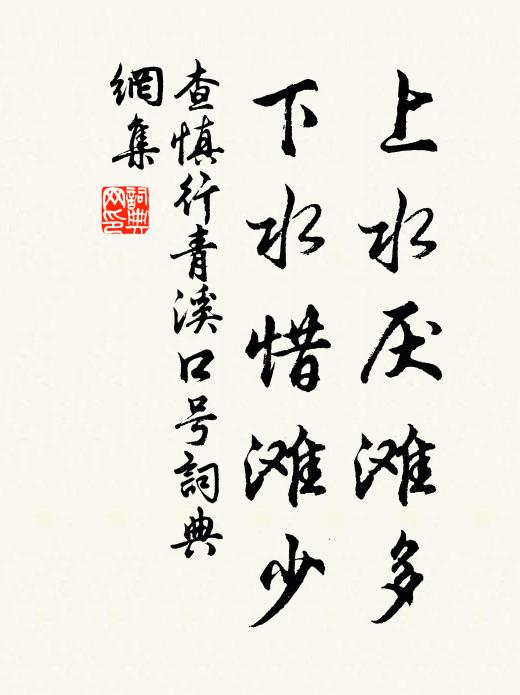 上水厌滩多
下水惜滩少
查慎行青溪口号詞典
網集
詞典网印